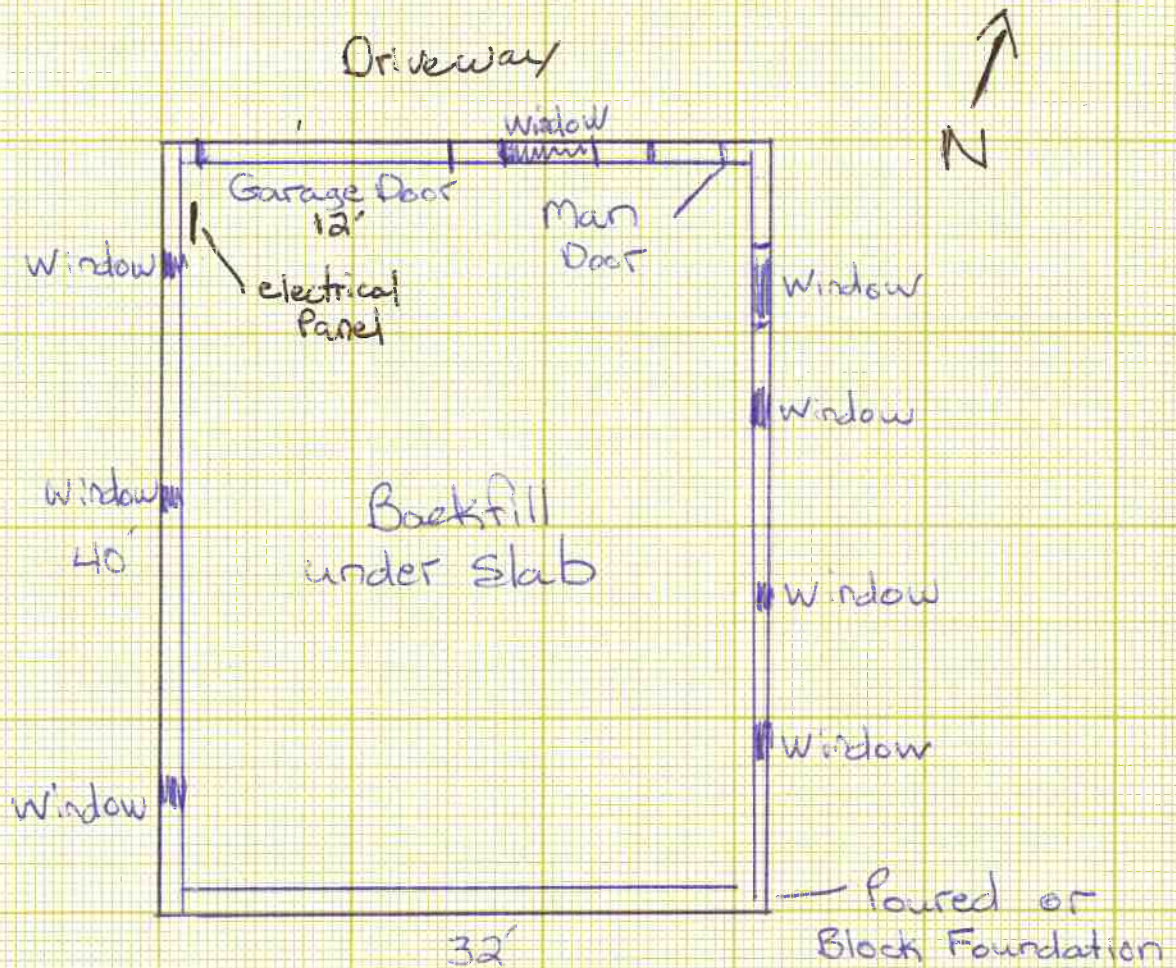 Driveway
N
Window
Garage Door
12'
Man
Door
Window
electrical
Panel
Window
Window
Window
40'
Backfill
under Slab
Window
Window
Window
32'
Poured or
Block Foundation